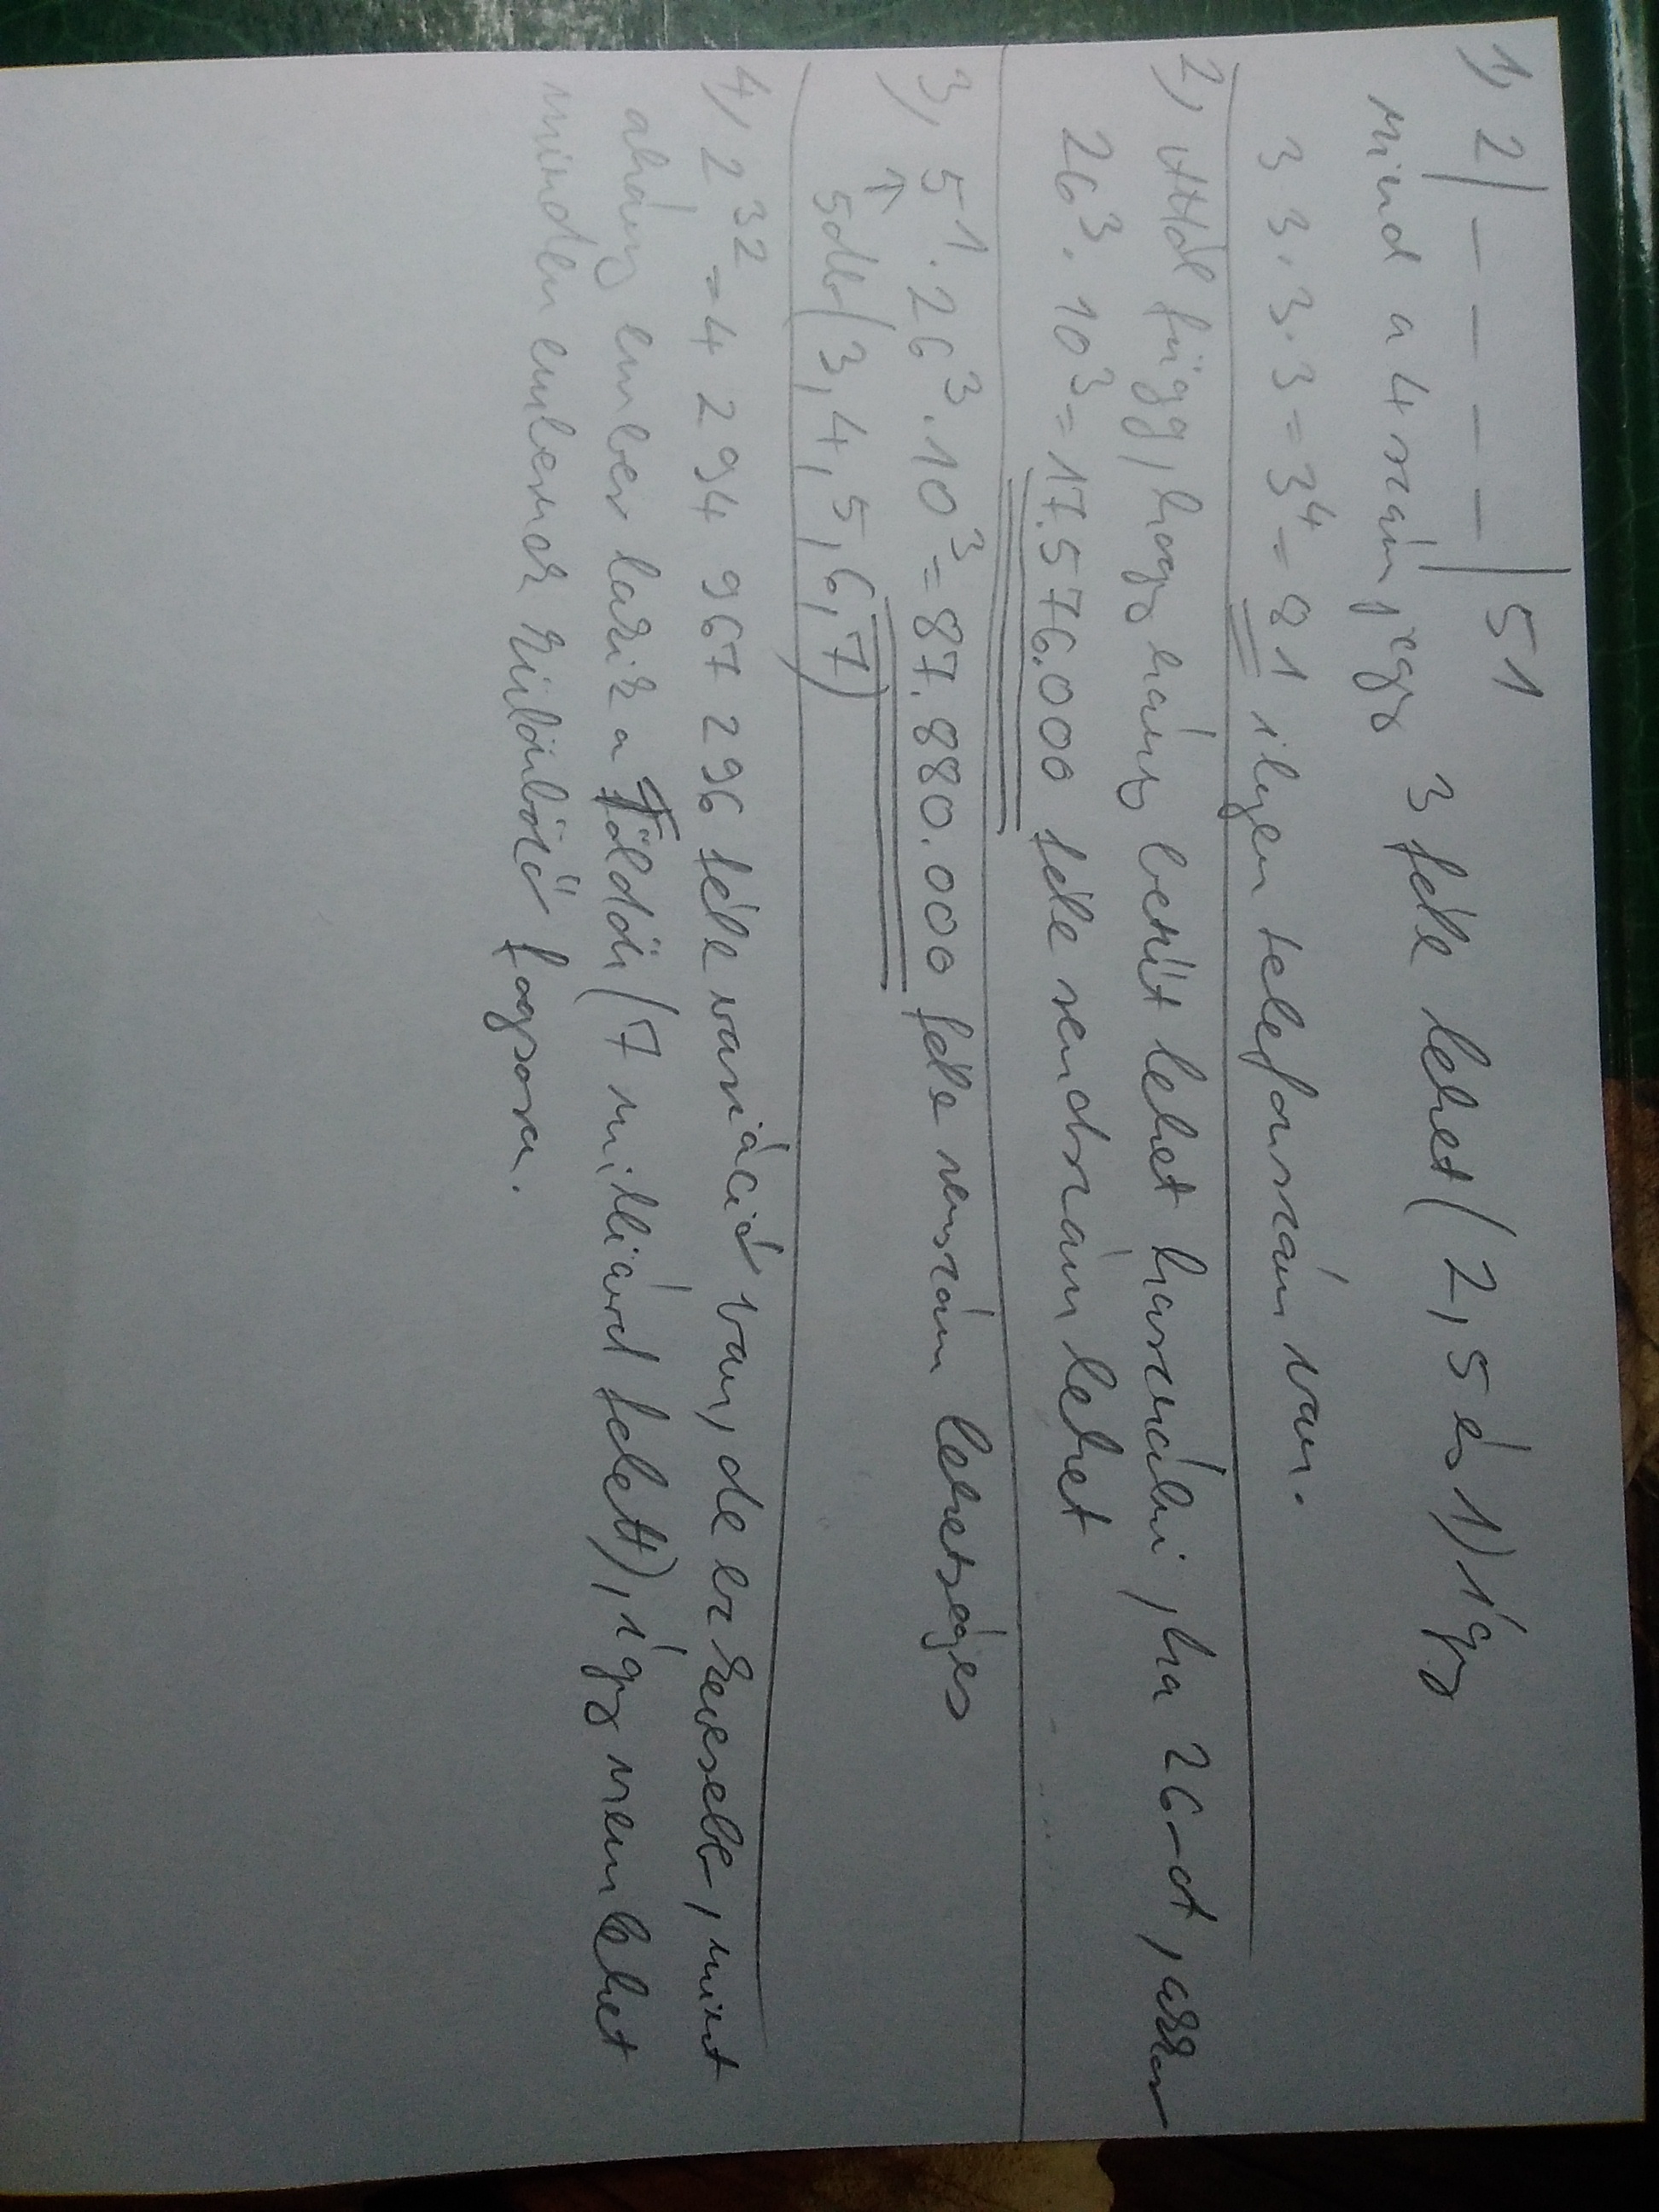 1, 2| _ _ _ _ |51 3 féle lehet (2, 5 és 1) így
mind a 4 számjegy
3·3·3·3=3⁴=81 ilyen telefonszám van.
2, Attól függ, hogy hány betűt lehet használni, ha 26-ot, akkor
26³·10³=17.576.000 féle rendszám lehet
3, 5¹·26³·10³=87.880.000 féle rendszám lehetséges
↑
5db (3, 4, 5, 6, 7)
4, 2³²=4 294 967 296 féle variáció van, de ez kevesebb, mint
ahány ember lakik a Földön (7 milliárd felett), így nem lehet
minden embernek különböző fogsora.